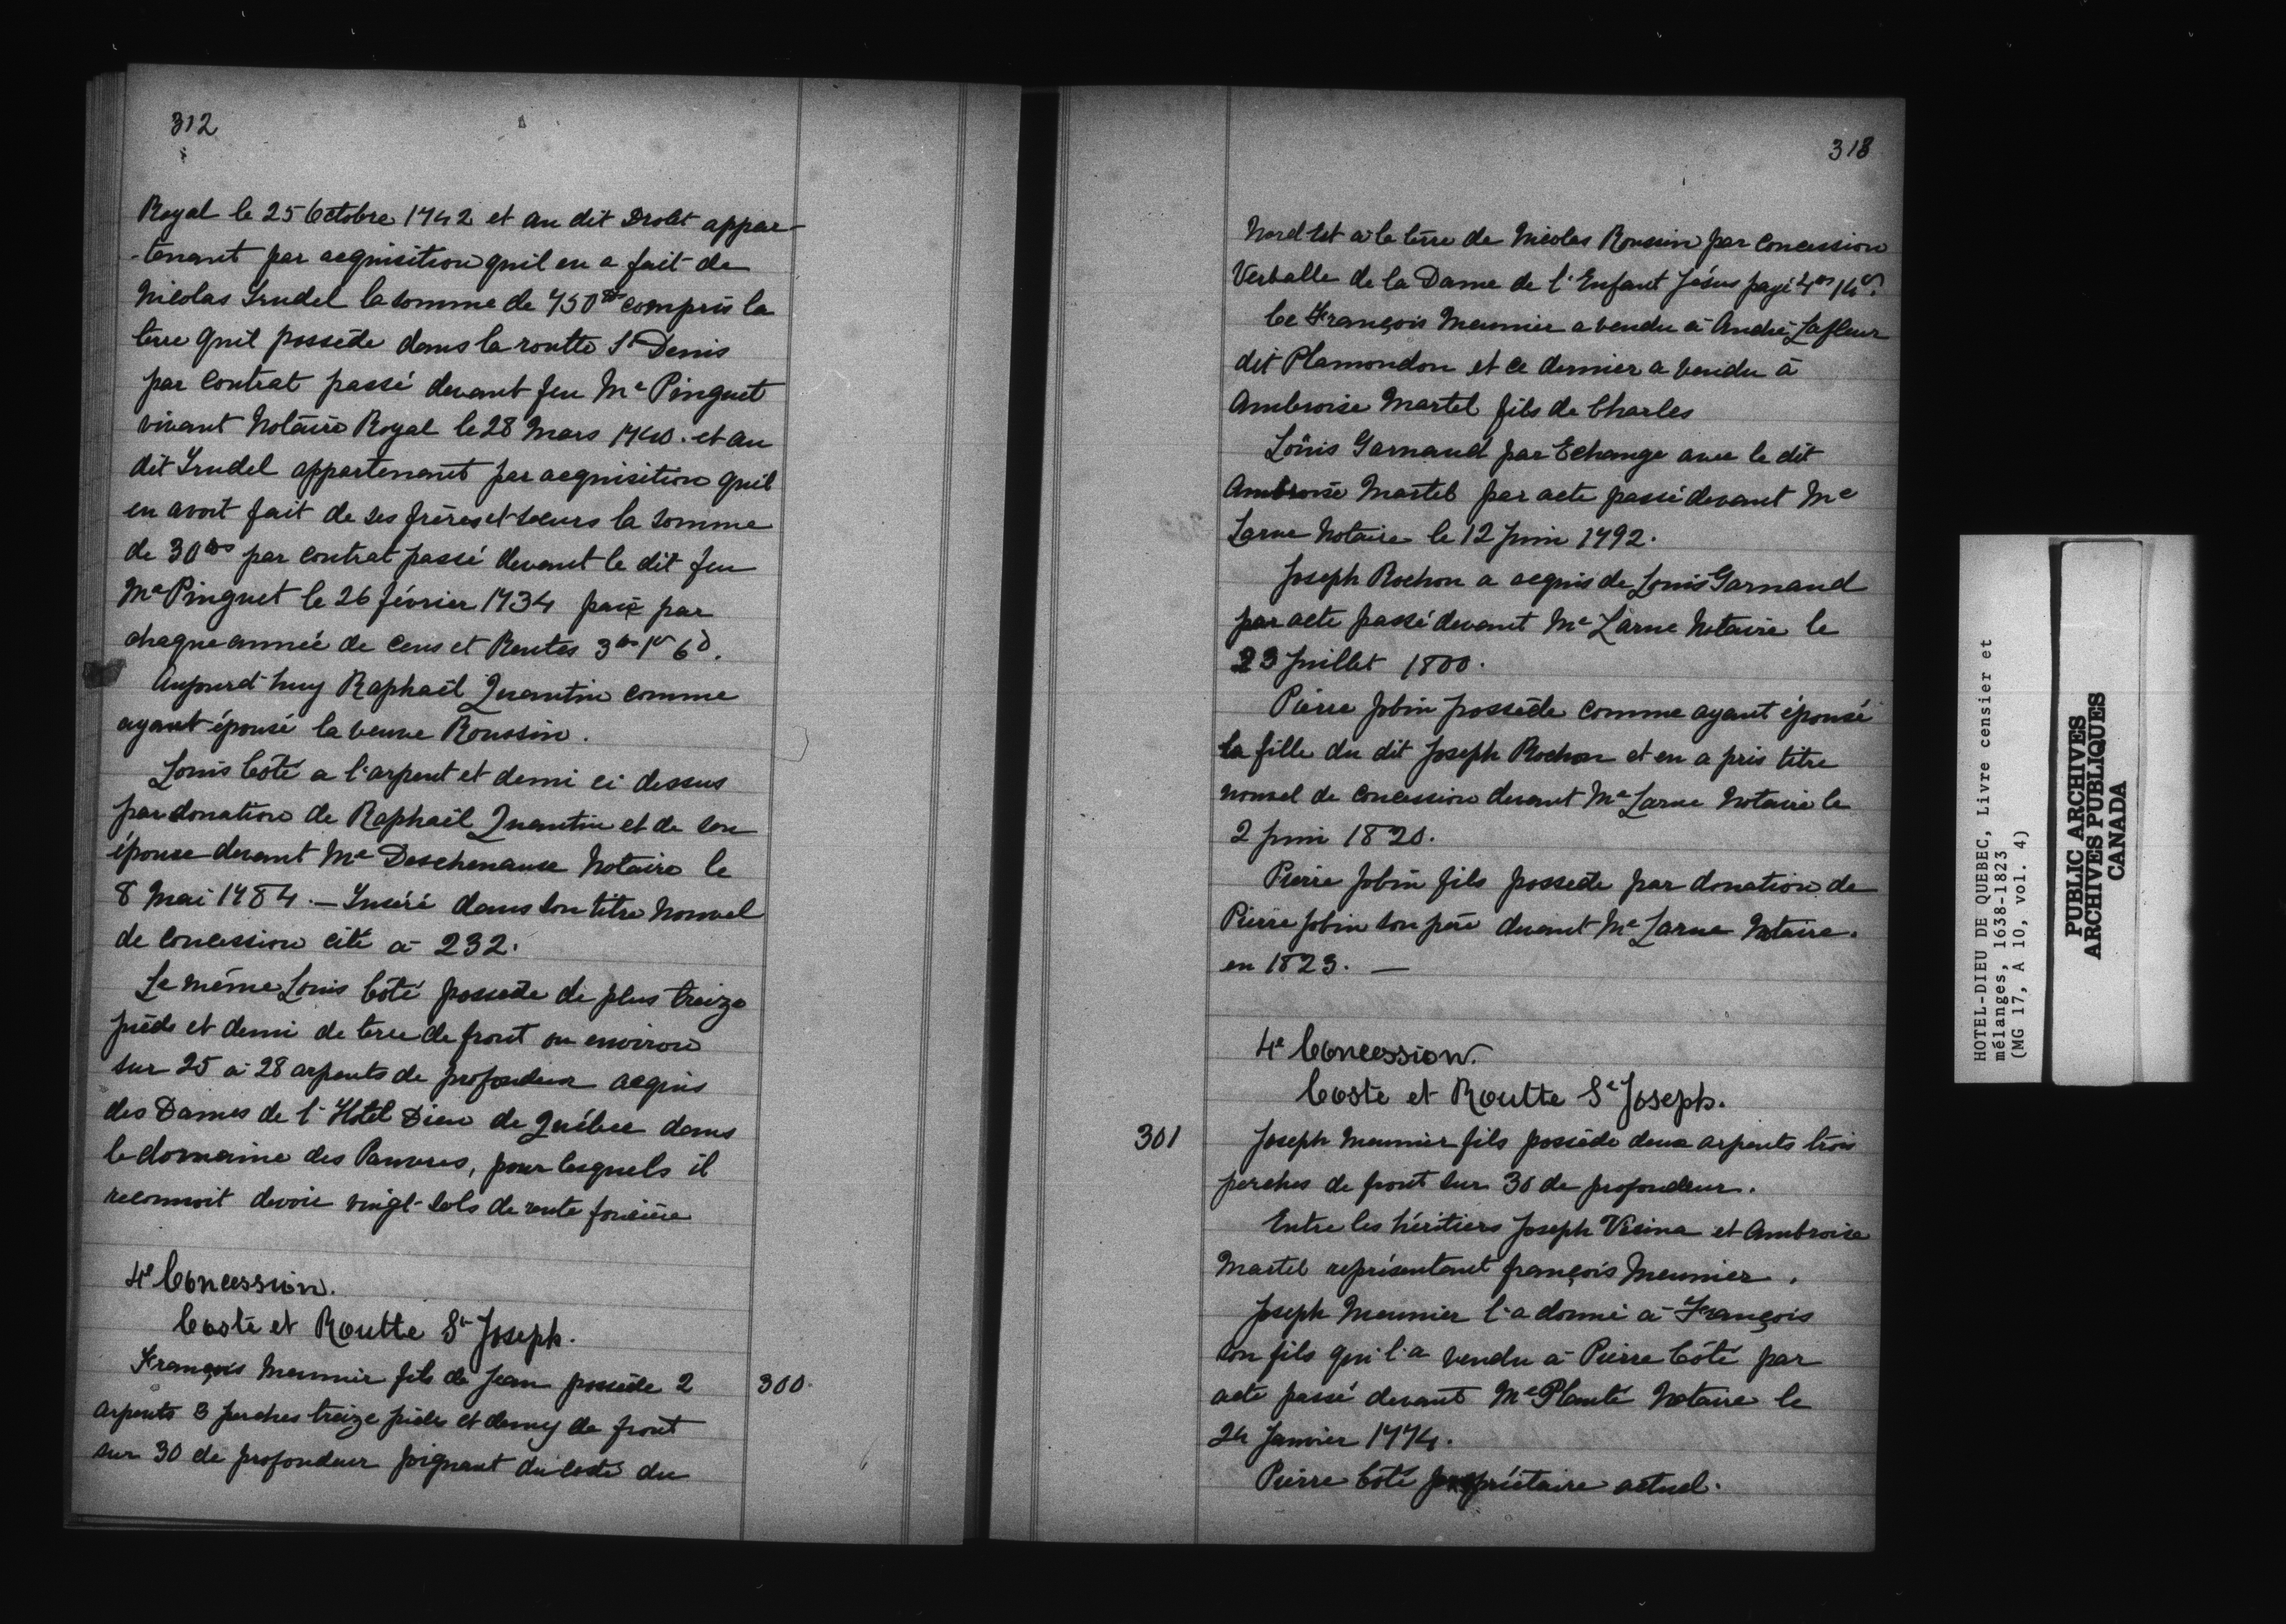 312
Royal le 25 Octobre 1742 et au dit Drolet appar-
-tenant par acquisition quil en a fait de
Nicolas Trudel la somme de 750lt compris la
terre quil possède dans la routte St Denis
par contrat passé devant feu Me Pinguet
vivant Notaire Royal le 28 Mars 1740. et au
dit Trudel appartenant par acquisition quil
en avoit fait de ses frères et soeurs la somme
de 30lts par contrat passé devant le dit feu
Me Pinguet le 26 février 1734 paie par
chaque année de cens et Rentes 3lts 1s 6d.
Aujourd'huy Raphaël Quantin comme
ayant épousé la veuve Roussin.
Louis Coté a l'arpent et demi ci dessus
par donation de Raphaël Quantin et de son
épouse devant Me Deschenaux Notaire le
8 Mai 1784. — Inséré dans son titre Nouvel
de Concession cité à 232.
Le même Louis Côté possède de plus treize
pieds et demi de terre de front ou environ
sur 25 à 28 arpents de profondeur acquis
des Dames de l'Hôtel Dieu de Québec dans
le domaine des Pauvres, pour lesquels il
reconnoit devoir vingt-sols de rente foncière
4e Concession.
Coste et Routte St Joseph.
François Meunier fils de Jean possède 2
300.
arpents 3 perches treize pieds et demy de front
sur 30 de profondeur joignant du costé du
318
Nord Est à la terre de Nicolas Roussin par concession
Verballe de la Dame de l'Enfant Jésus payé 4lts 14s.
Ce François Meunier a vendu à André Lafleur
dit Plamondon et ce dernier a vendu à
Ambroise Martel fils de Charles
Louis Garnaud par Echange avec le dit
Ambroise Martel par acte passé devant Me
Larue Notaire le 12 Juin 1792.
Joseph Rochon a acquis de Louis Garnaud
par acte passé devant Me Larue Notaire le
23 Juillet 1800.
Pierre Jobin possède comme ayant épousé
la fille du dit Joseph Rochon et en a pris titre
nouvel de concession devant Me Larue Notaire le
2 Juin 1820.
Pierre Jobin fils possede par donation de
Pierre Jobin son père devant Me Larue Notaire.
en 1823. —
4e Concession.
Coste et Routte St Joseph.
301
Joseph Meunier fils possède deux arpents trois
perches de front sur 30 de profondeur.
Entre les héritiers Joseph Vésina et Ambroise
Martel représentant françois Meunier.
Joseph Meunier l'a donné à François
son fils qui l'a vendu à Pierre Côté par
acte passé devant Me Planté Notaire le
24 Janvier 1774.
Pierre Côté propriétaire actuel.
HOTEL-DIEU DE QUEBEC, Livre censier et
mélanges, 1638-1823
(MG 17, A 10, vol. 4)
PUBLIC ARCHIVES
ARCHIVES PUBLIQUES
CANADA